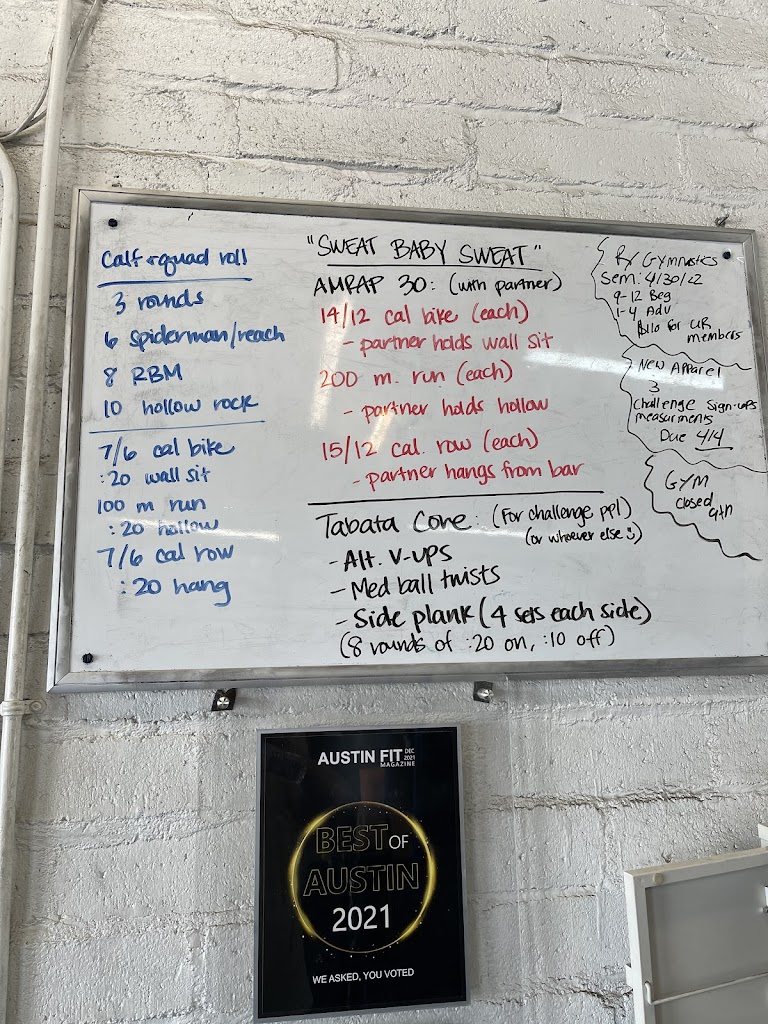 Calf + quad roll
3 rounds
6 spiderman/reach
8 RBM
10 hollow rock
7/6 cal bike
:20 wall sit
100 m run
:20 hollow
7/6 cal row
:20 hang
"SWEAT BABY SWEAT"
AMRAP 30: (with partner)
14/12 cal bike (each)
- partner holds wall sit
200 m. run (each)
- partner holds hollow
15/12 cal. row (each)
- partner hangs from bar
Tabata Core: (For challenge ppl)
(or whoever else :))
- Alt. V-ups
- Med ball twists
- Side plank (4 sets each side)
(8 rounds of :20 on, :10 off)
Rx Gymnastics
Sem: 4/30/22
9-12 Beg
1-4 Adv
$110 for UR
members
New Apparel
3
Challenge sign-ups
measurments
Due 4/4
GYM
closed
9th
AUSTIN FIT DEC 2021
MAGAZINE
BEST OF
AUSTIN
2021
WE ASKED, YOU VOTED